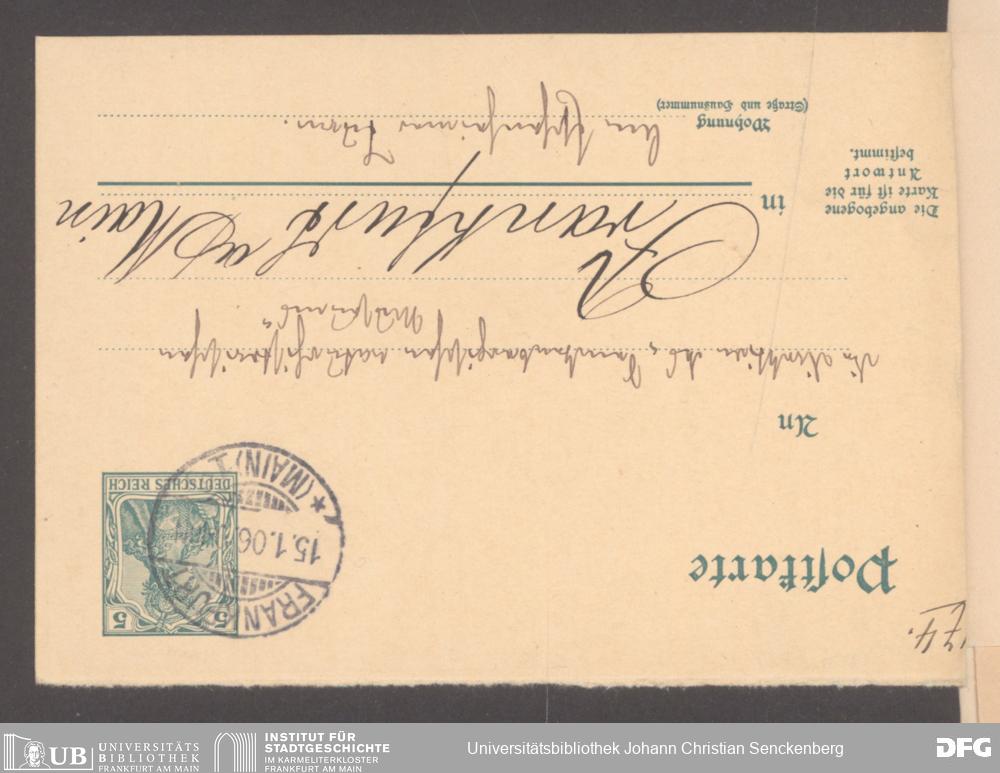 174.
Postkarte
5 5
DEUTSCHES REICH
FRANKFURT
15.1.06
* (MAIN) 1
An
die Direktion des „Senckenbergischen naturhistorischen
Museums“
in Frankfurt a/Main
Wohnung
(Straße und Hausnummer)
Am Eschenheimer Turm.
Die angebogene
Karte ist für die
Antwort
bestimmt.
UB UNIVERSITÄTS
BIBLIOTHEK
FRANKFURT AM MAIN
INSTITUT FÜR
STADTGESCHICHTE
IM KARMELITERKLOSTER
FRANKFURT AM MAIN
Universitätsbibliothek Johann Christian Senckenberg
DFG